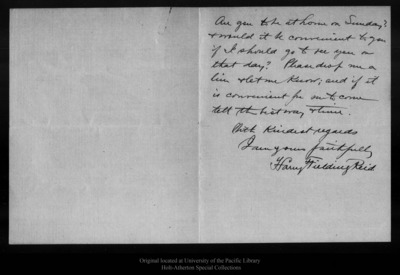 Are you to be at home on Sunday?
& would it be convenient to you
if I should go to see you on
that day? Please drop me a
line & let me know; and if it
is convenient for me to come
tell the best way & time.
With kindest regards
I am yours faithfully
Harry Fielding Reid
Original located at University of the Pacific Library
Holt-Atherton Special Collections